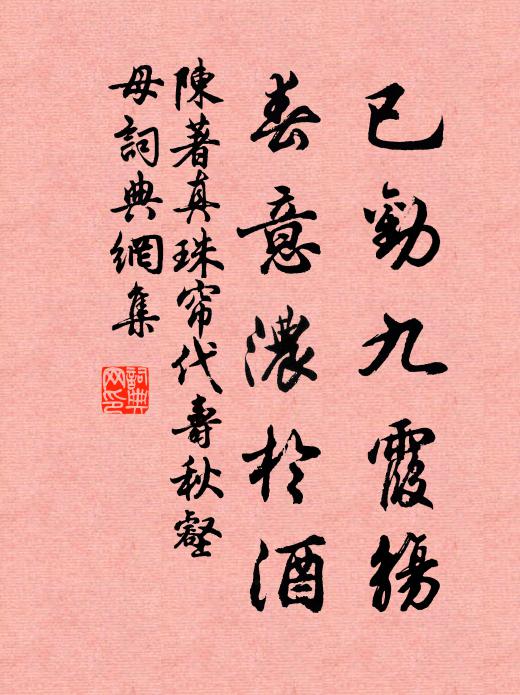 已勸九霞觴
春意濃於酒
陳著真珠帘代壽秋壑
母詞典網集
詞典網印